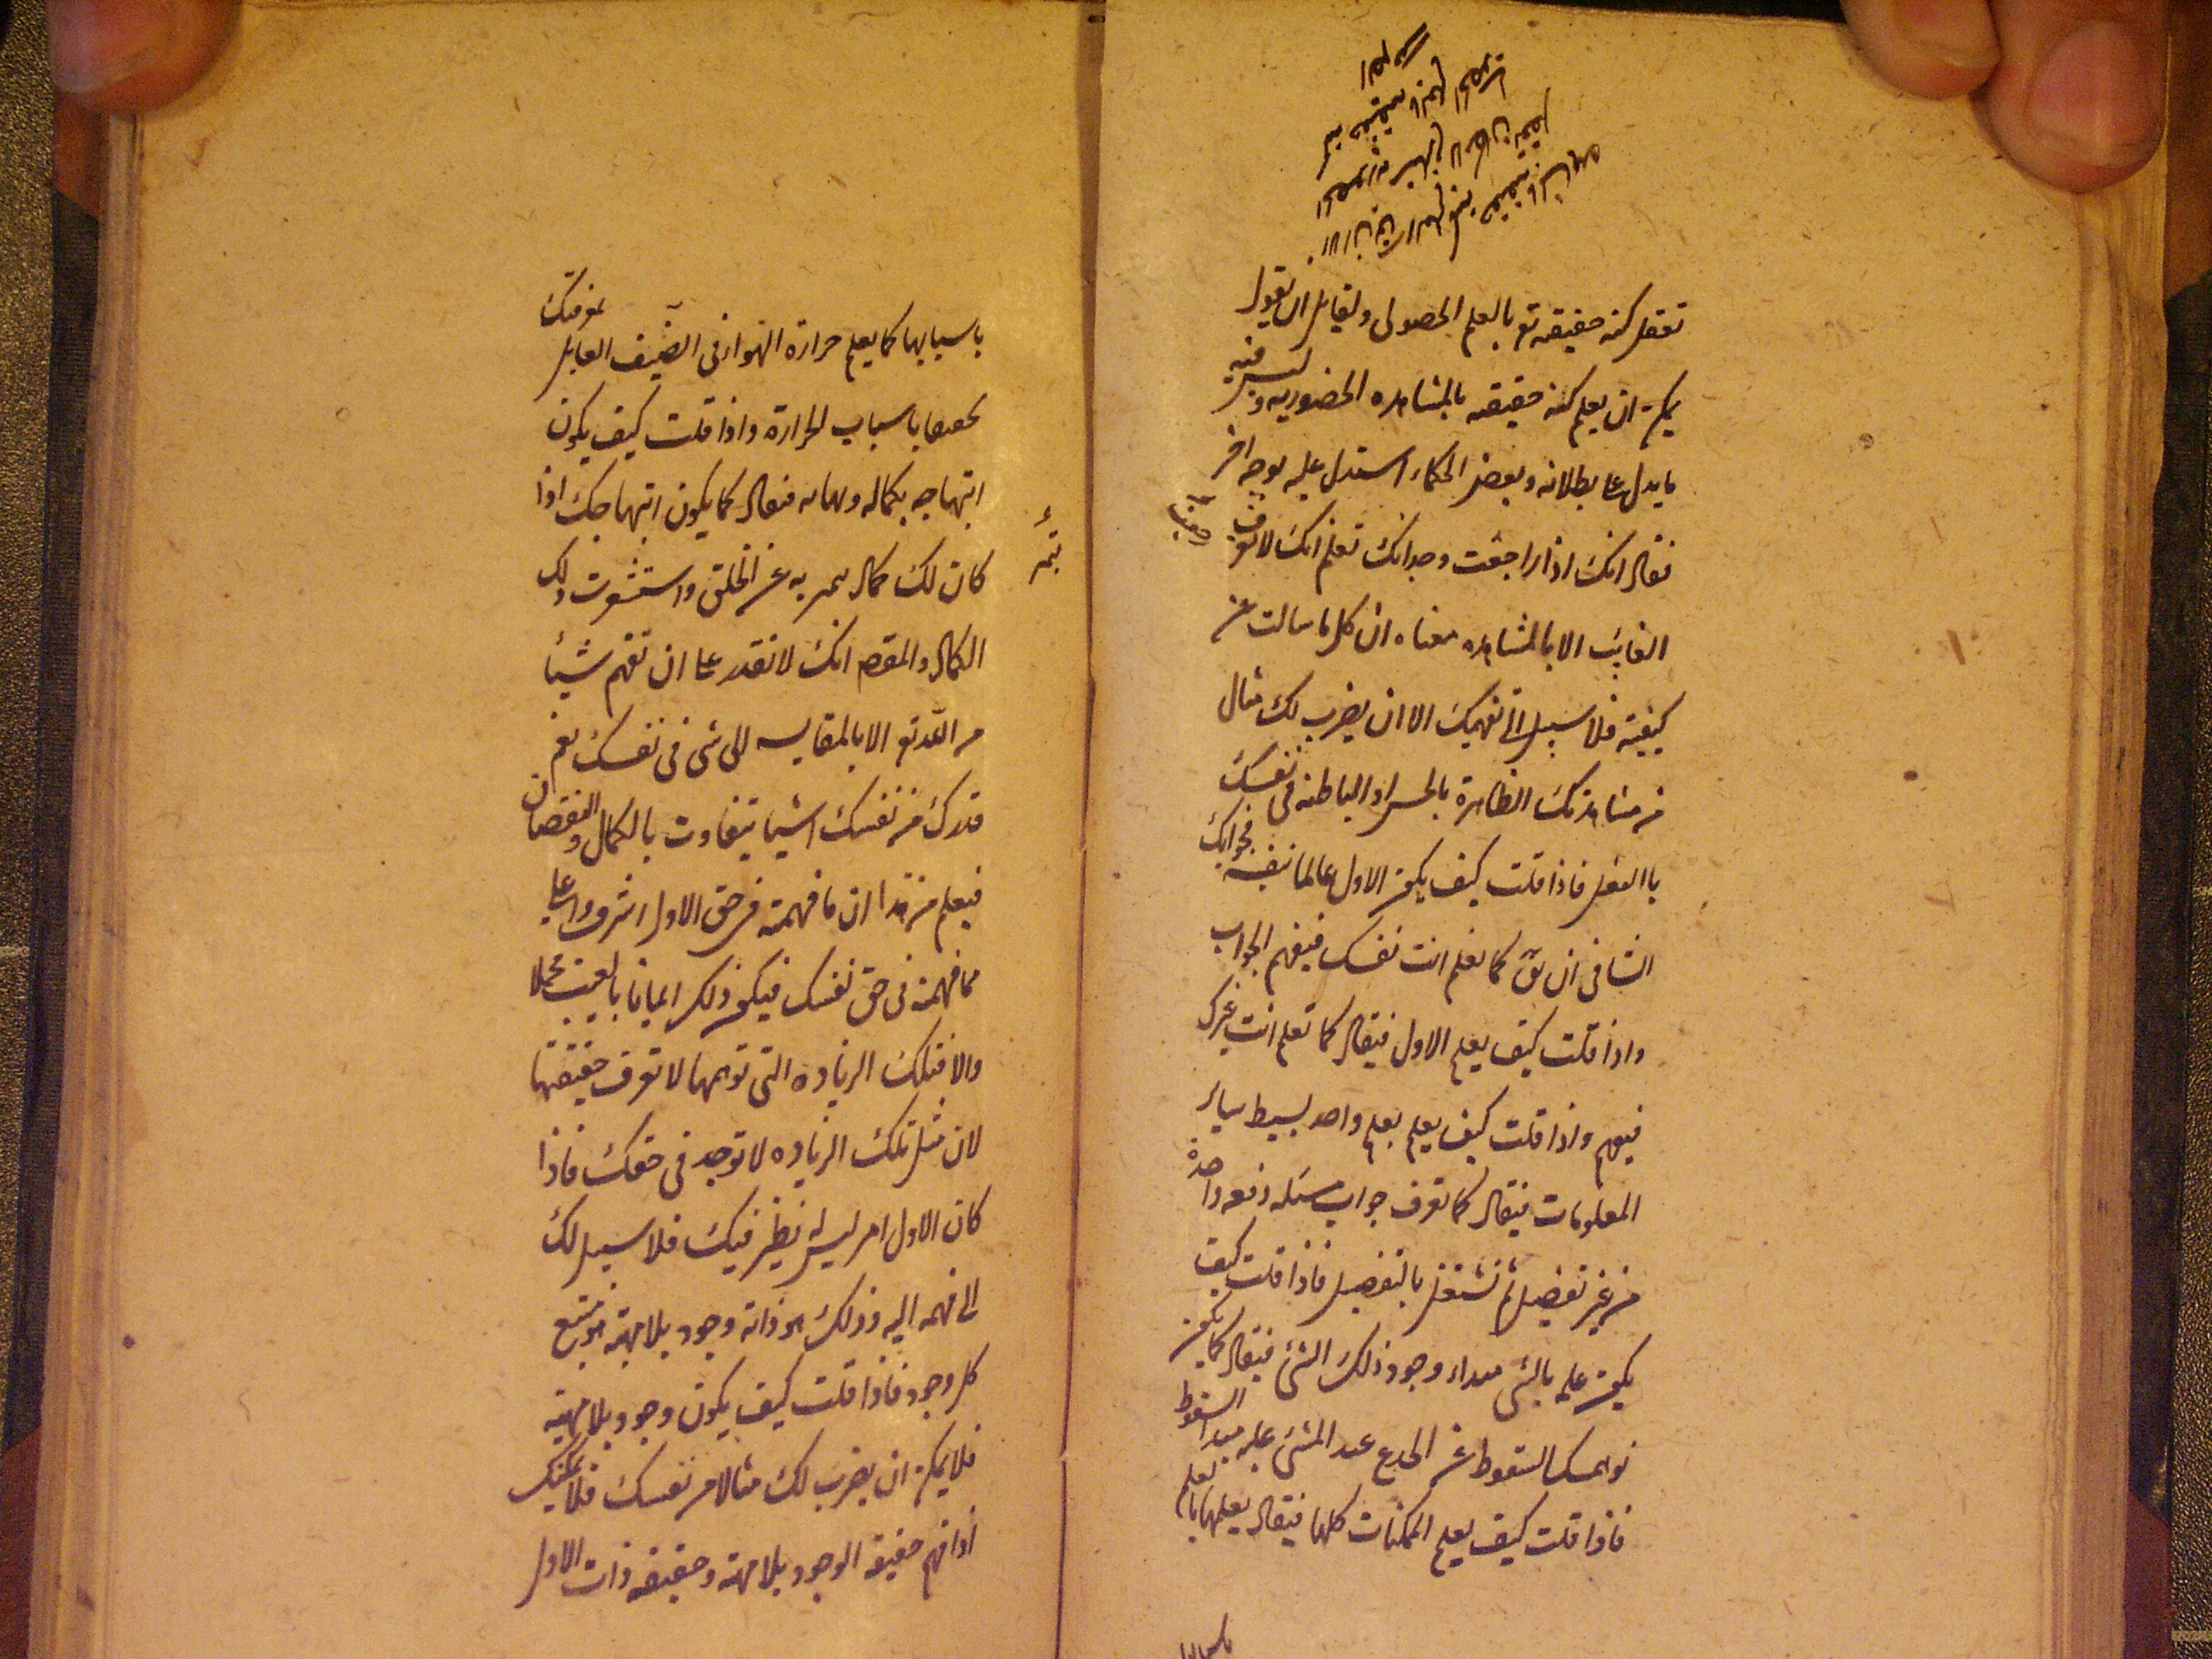 تعقل كنه حقيقه تع بالعلم الحصولى ولقايل ان يقول
يمكن ان يعلم كنه حقيقه بالمشاهده الحضوريه وليس فيه
ما يدل على بطلانه وبعض الحكماء استدل عليه بوجه اخر
فقال انك اذا راجعت وجدانك تعلم انك لا تعرف
الغايب الا بالمشاهده معناه ان كل ما سالت عن
كيفيته فلا سبيل الى تفهيمك الا ان يضرب لك مثال
من مشاهدتك الظاهرة بالحس او الباطنه فى نفسك
باالعقل فاذا قلت كيف يكون الاول عالما بنفسه فجوابك
الشافى ان يق كما تعلم انت نفسك فيفهم الجواب
واذا قلت كيف يعلم الاول فيقال كما تعلم انت غيرك
فيفهم واذا قلت كيف يعلم بعلم واحد بسيط ساير
المعلومات فيقال كما تعرف جواب مسئله دفعه واحدة
من غير تفصيل ثم تشتغل بالتفصيل فاذا قلت كيف
يكون علمه بالشى مبداء وجود ذلك الشئ فيقال كما يكون
توهمك السقوط عن الجدع عند المشى عليه مبدا السقوط
فاذا قلت كيف يعلم الممكنات كلها فيقال يعلمها بالعلم
باسبابها كما يعلم حرارة الهواء فى الصيف القابل بمعرفتك
باسباب الحرارة واذا قلت كيف يكون
ابتهاجه بكماله وبهائه فيقال كما يكون ابتهاجك اذا
كان لك كمال به عن الخلق واستشعرت ذلك
الكمال والمقصد انك لا تقدر على ان تفهم شيئا
من الله تع الا بالمقايسه الى شى فى نفسك نعم
تدرك من نفسك اشيا يتفاوت بالكمال والنقصان
فيعلم من هذا ان ما فهمته فى حق الاول اشرف واعلى
مما فهمته فى حق نفسك فيكون ذلك ايمانا بالغيب مجملا
والا فتلك الزياده التى توهمها لا تعرف حقيقتها
لان مثل تلك الزياده لا توجد فى حقك فاذا
كان الاول امر ليس له نظير فيك فلا سبيل لك
الى فهمه اليه وذلك هو ذاته وجود بلا مهية هو منبع
كل وجود فاذا قلت كيف يكون وجود بلا مهية
فلا يمكن ان يضرب لك مثالا من نفسك فلا يمكنك
اذا فهم حقيقه الوجود بلا مهيه وحقيقه ذات الاول